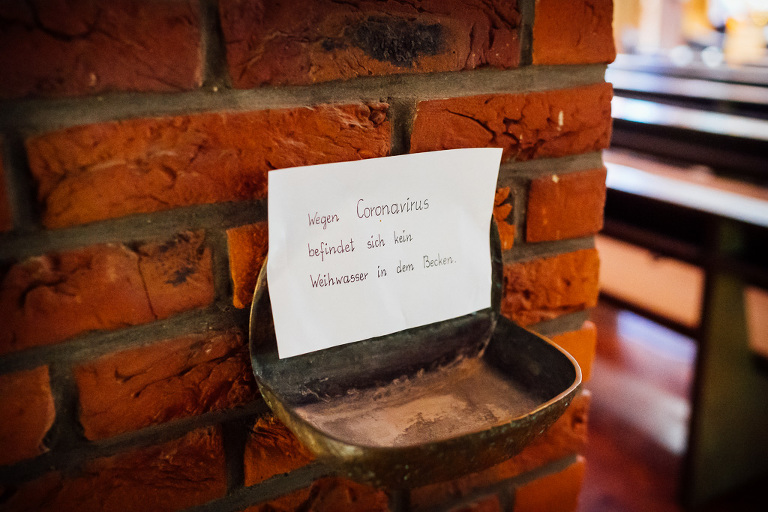 Wegen Coronavirus
befindet sich kein
Weihwasser in dem Becken.